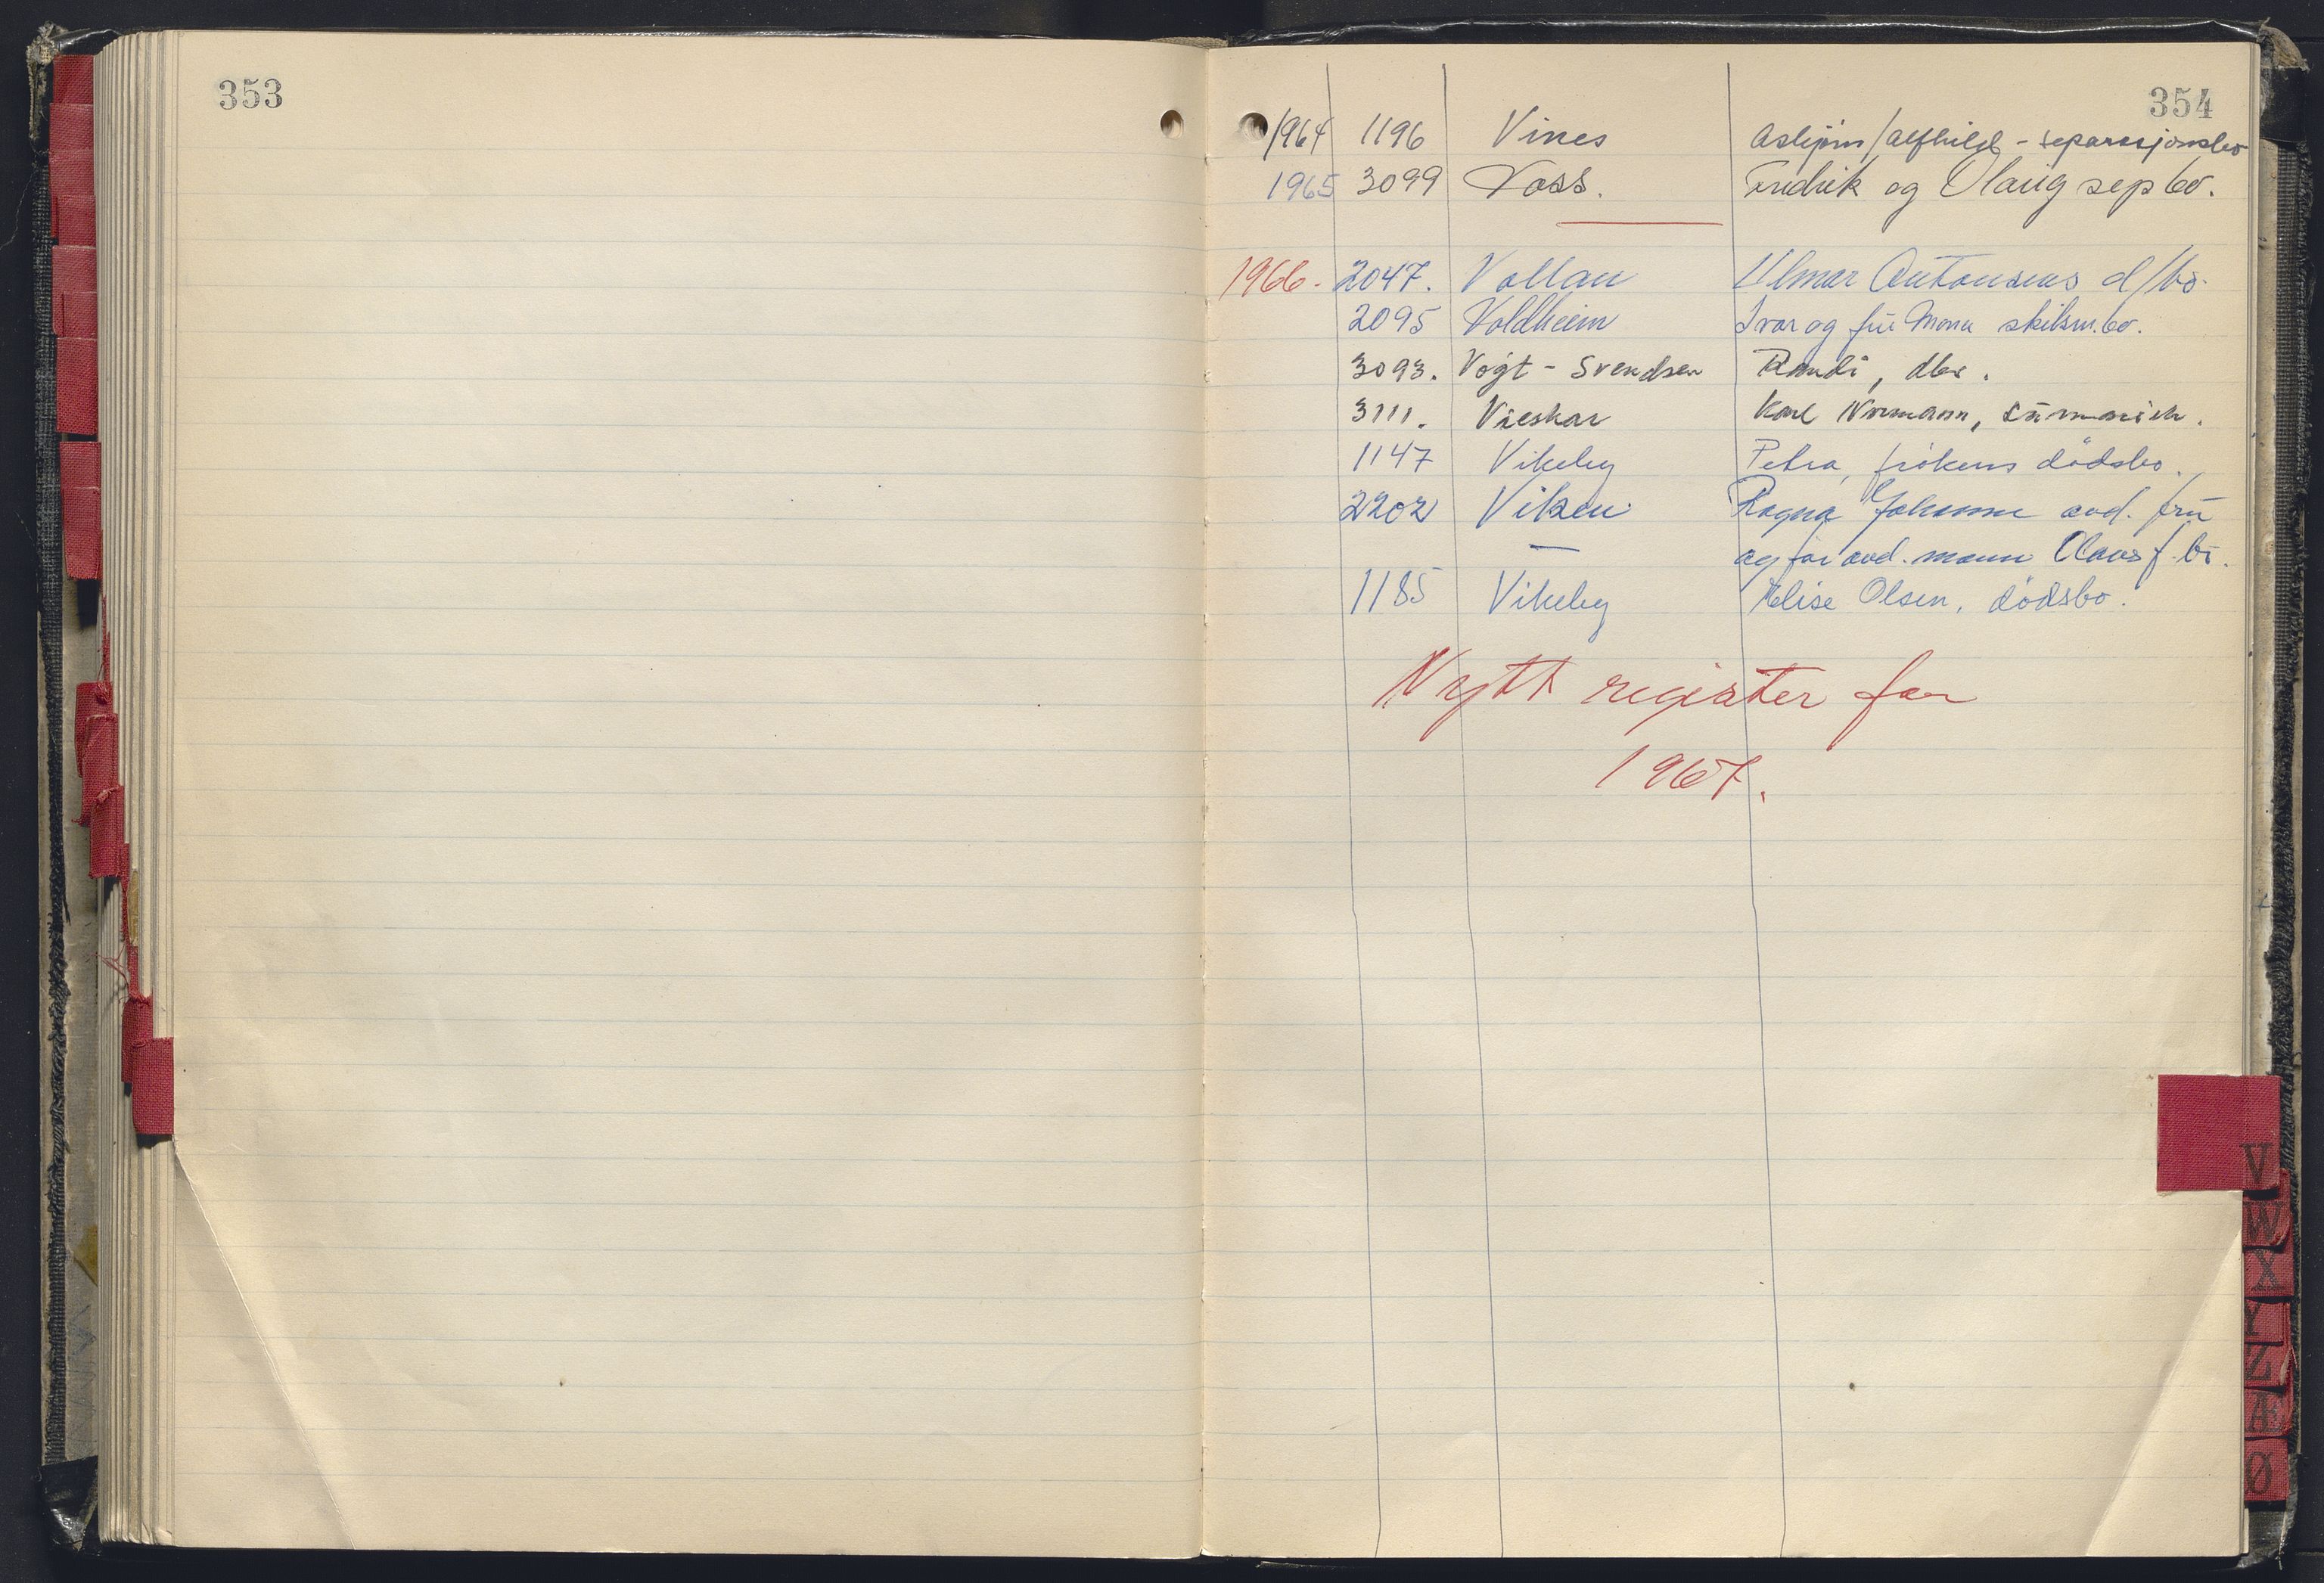 353
354
1964 1196 Vines Asbjørn/Alfhild - separasjonsbo
1965 3099 Voss. Fredrik og Olaug sep bo.
1966. 2047. Vollan Ulmar Antonsens d/bo.
2095 Voldheim Ivar og fru Mona skilsm.bo.
3093. Vogt - Svendsen Randi, dbo.
3111. Karl Normann,
1147 Vikeby Petra, frøkens dødsbo.
2202 Viken Ragna Johanne avd. fru
— og før avd. mann Olaus f. bo.
1185 Vikeby Elise Olsen, dødsbo.
Nytt register for
1967.
V
W
X
Y
Z
Æ
Ø